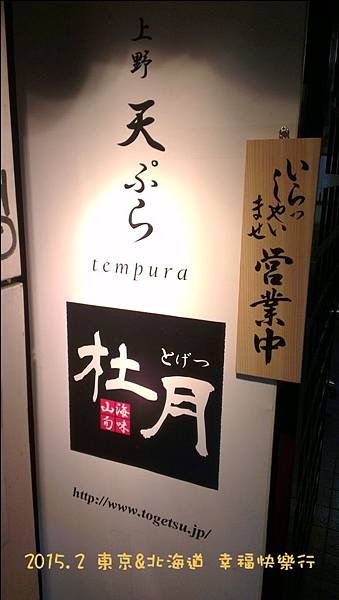 上野
天ぷら
tempura
杜月
とげつ
海味
山旬
http://www.togetsu.jp/
いらっ
しゃい
ませ
営業中
2015.2 東京&北海道 幸福快樂行